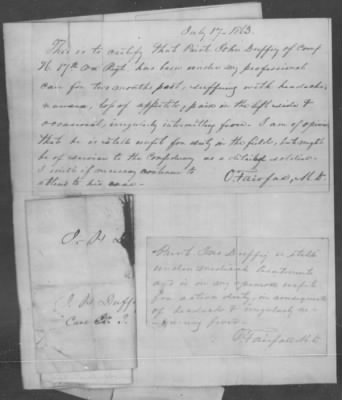 July 17- 1863.
This is to certify that Privt John Duffey of Comp
H. 17th Va Regt. has been under my professional
care for two months past, suffering with headache,
nausea, loss of appetite, pain in the left side &
occasional, irregularly intermitting fever. I am of opinion
that he is unfit for duty in the field, but might
be of service to the Confederacy as a detailed soldier.
I will if necessary continue to
attend to his case.
O. Fairfax, M.D.
J. H. D
J. H. Duff
Privt. Jno Duffey is still
under medical treatment
and is in my opinion unfit
for active duty, in consequence
of headache & irregularly
fever.
O. Fairfax M.D.